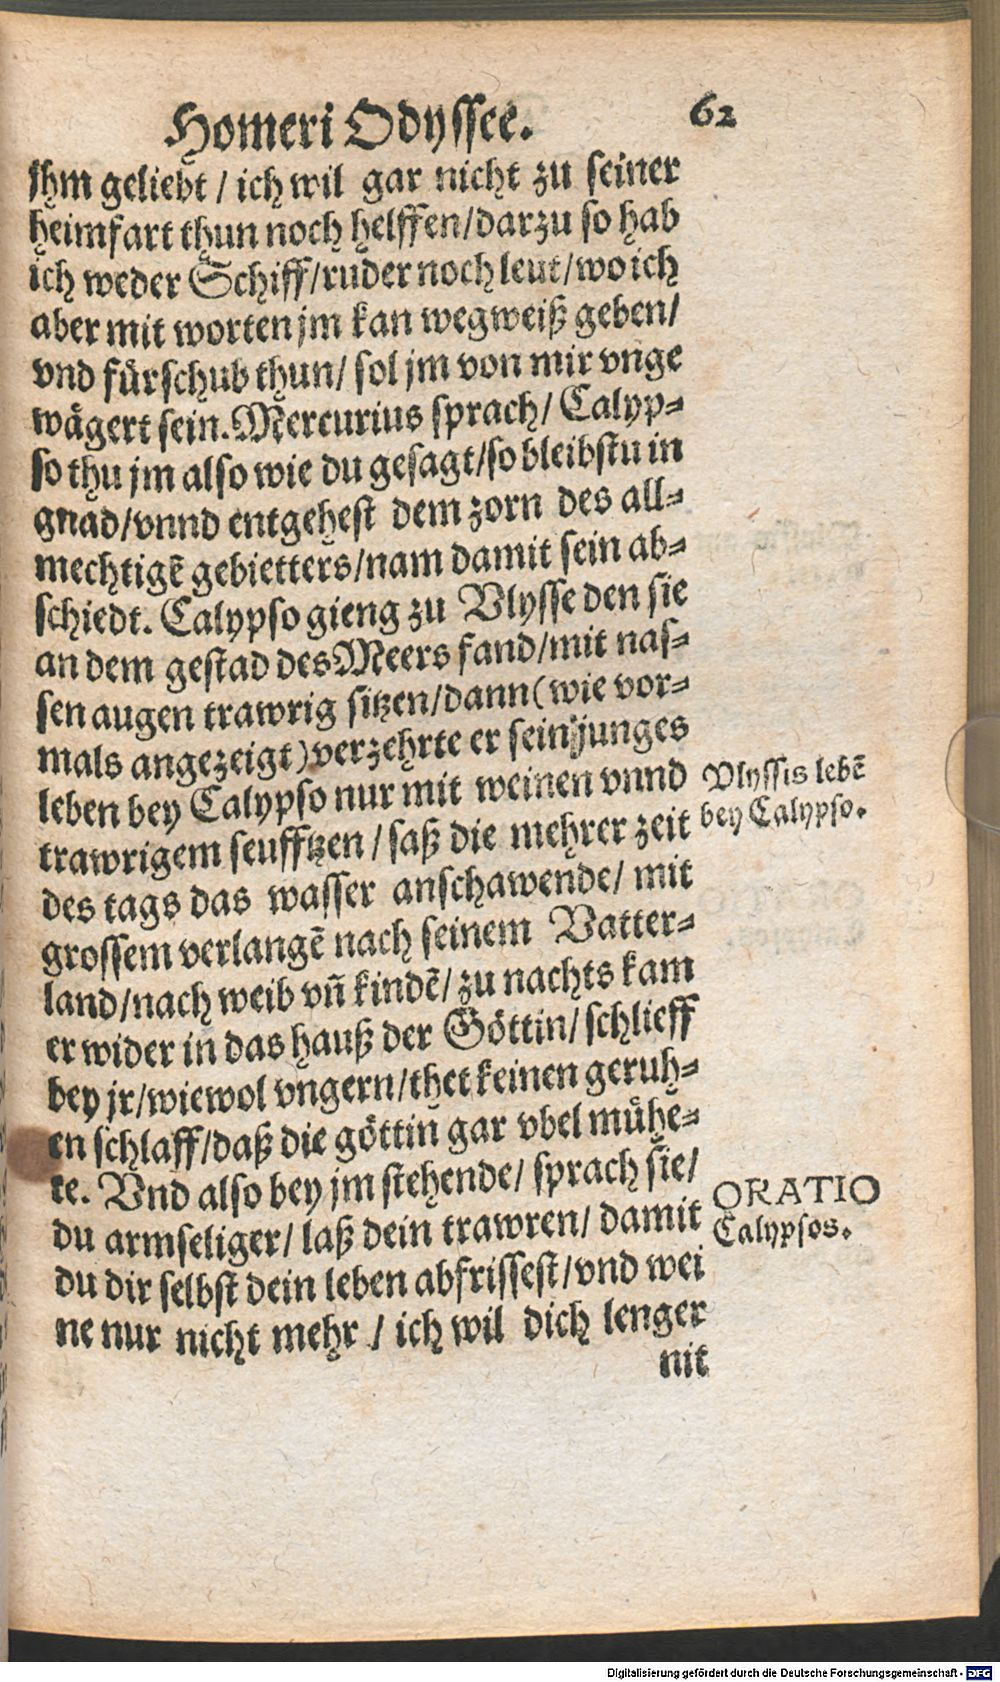 Homeri Odyssee. 62
jhm geliebt / ich wil gar nicht zu seiner
heimfart thun noch helffen/darzu so hab
ich weder Schiff/ruder noch leut/wo ich
aber mit worten jm kan wegweiß geben/
vnd fürschub thun/ sol jm von mir vnge
wägert sein. Mercurius sprach/ Calyp-
so thu jm also wie du gesagt/so bleibstu in
gnad/vnnd entgehest dem zorn des all-
mechtigẽ gebietters/nam damit sein ab-
schiedt. Calypso gieng zu Vlysse den sie
an dem gestad des Meers fand/mit nas-
sen augen trawrig sitzen/dann (wie vor-
mals angezeigt) verzehrte er sein junges
leben bey Calypso nur mit weinen vnnd
trawrigem seufftzen / saß die mehrer zeit
des tags das wasser anschawende/ mit
grossem verlangẽ nach seinem Vatter-
land/nach weib vñ kindẽ/ zu nachts kam
er wider in das hauß der Göttin/ schlieff
bey jr/wiewol vngern/thet keinen geruh-
en schlaff/daß die göttin gar vbel mühe-
te. Vnd also bey jm stehende/ sprach sie/
du armseliger/ laß dein trawren/ damit
du dir selbst dein leben abfrissest/vnd wei
ne nur nicht mehr / ich wil dich lenger
nit
Vlyssis lebẽ
bey Calypso.
ORATIO
Calypsos.
Digitalisierung gefördert durch die Deutsche Forschungsgemeinschaft - DFG